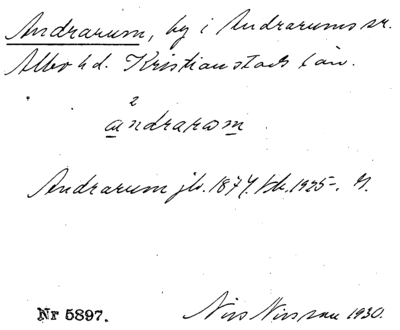 Andrarum, by i Andrarums sn.
Albo hd. Kristianstads län.
2
andrarωm
Andrarum jb. 1877. kb. 1925-.
Nr 5897.
Nils Nilsson 1930.